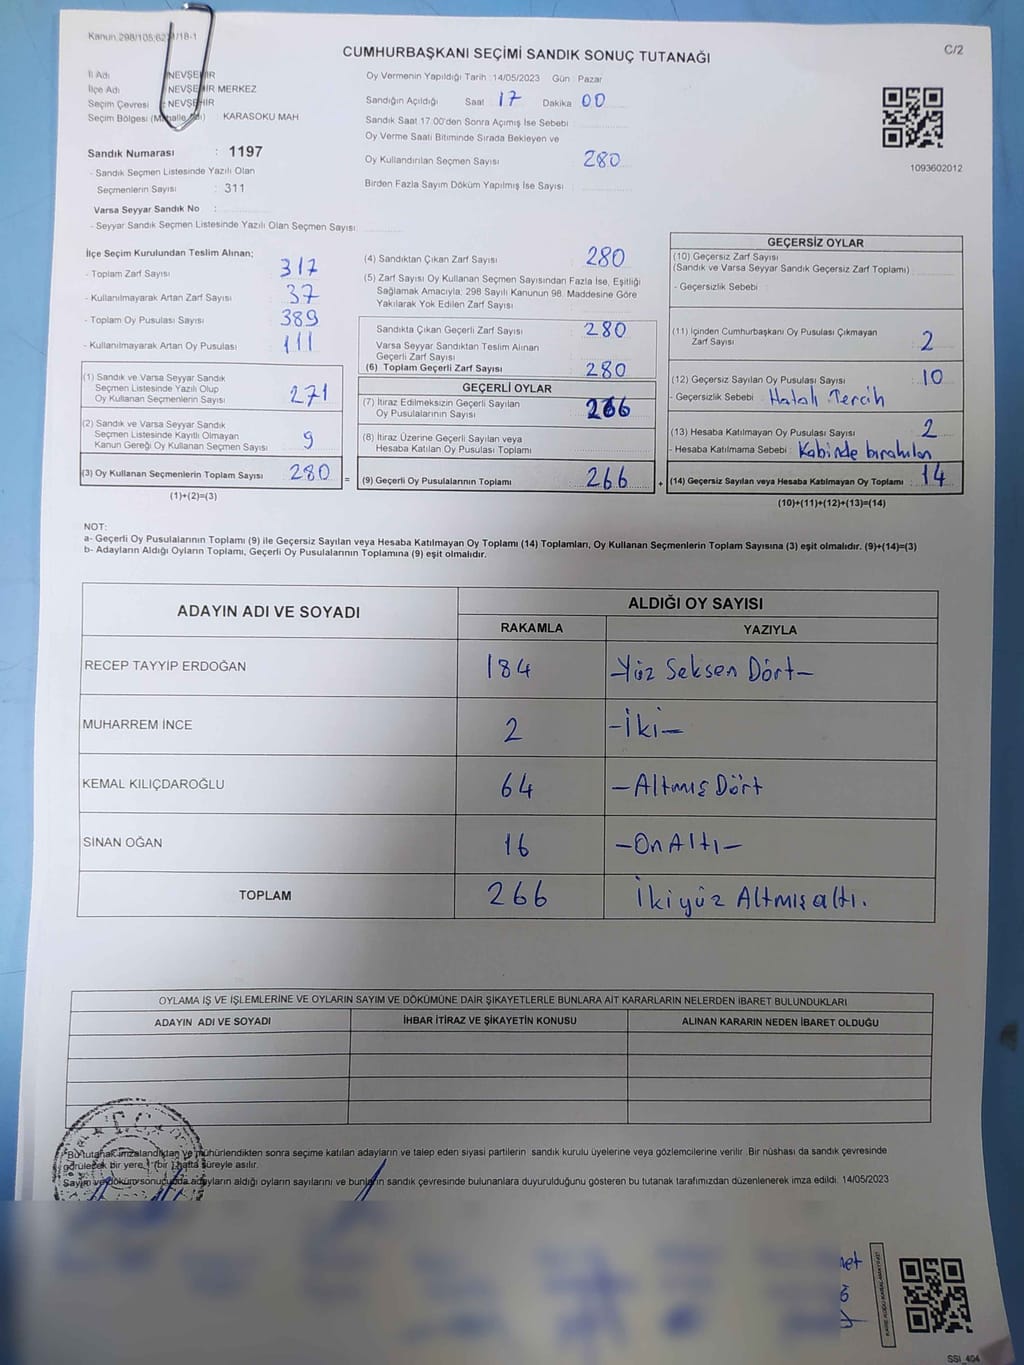 Kanun 298/105;62 /18-1
C/2
CUMHURBAŞKANI SEÇİMİ SANDIK SONUÇ TUTANAĞI
İl Adı NEVŞEHİR
İlçe Adı NEVŞEHİR MERKEZ
Seçim Çevresi : NEVŞEHİR
Seçim Bölgesi (Mahalle Adı) KARASOKU MAH
Sandık Numarası : 1197
- Sandık Seçmen Listesinde Yazılı Olan
Seçmenlerin Sayısı : 311
Varsa Seyyar Sandık No :
- Seyyar Sandık Seçmen Listesinde Yazılı Olan Seçmen Sayısı:
Oy Vermenin Yapıldığı Tarih : 14/05/2023 Gün : Pazar
Sandığın Açıldığı Saat : 17 Dakika : 00
Sandık Saat 17:00'den Sonra Açımış İse Sebebi :
Oy Verme Saati Bitiminde Sırada Bekleyen ve
Oy Kullandırılan Seçmen Sayısı : 280
Birden Fazla Sayım Döküm Yapılmış İse Sayısı :
1093602012
İlçe Seçim Kurulundan Teslim Alınan;
- Toplam Zarf Sayısı : 317
- Kullanılmayarak Artan Zarf Sayısı : 37
- Toplam Oy Pusulası Sayısı : 389
- Kullanılmayarak Artan Oy Pusulası : 111
(1) Sandık ve Varsa Seyyar Sandık
Seçmen Listesinde Yazılı Olup
Oy Kullanan Seçmenlerin Sayısı : 271
(2) Sandık ve Varsa Seyyar Sandık
Seçmen Listesinde Kayıtlı Olmayan
Kanun Gereği Oy Kullanan Seçmen Sayısı : 9
(3) Oy Kullanan Seçmenlerin Toplam Sayısı : 280
(1)+(2)=(3)
(4) Sandıktan Çıkan Zarf Sayısı : 280
(5) Zarf Sayısı Oy Kullanan Seçmen Sayısından Fazla İse, Eşitliği
Sağlamak Amacıyla, 298 Sayılı Kanunun 98. Maddesine Göre
Yakılarak Yok Edilen Zarf Sayısı :
Sandıkta Çıkan Geçerli Zarf Sayısı : 280
Varsa Seyyar Sandıktan Teslim Alınan
Geçerli Zarf Sayısı :
(6) Toplam Geçerli Zarf Sayısı : 280
GEÇERLİ OYLAR
(7) İtiraz Edilmeksizin Geçerli Sayılan
Oy Pusulalarının Sayısı : 266
(8) İtiraz Üzerine Geçerli Sayılan veya
Hesaba Katılan Oy Pusulası Toplamı :
= (9) Geçerli Oy Pusulalarının Toplamı : 266
GEÇERSİZ OYLAR
(10) Geçersiz Zarf Sayısı
(Sandık ve Varsa Seyyar Sandık Geçersiz Zarf Toplamı) :
- Geçersizlik Sebebi :
(11) İçinden Cumhurbaşkanı Oy Pusulası Çıkmayan
Zarf Sayısı : 2
(12) Geçersiz Sayılan Oy Pusulası Sayısı : 10
- Geçersizlik Sebebi : Hatalı Tercih
(13) Hesaba Katılmayan Oy Pusulası Sayısı : 2
- Hesaba Katılmama Sebebi : Kabinde bırakılan
+ (14) Geçersiz Sayılan veya Hesaba Katılmayan Oy Toplamı : 14
(10)+(11)+(12)+(13)=(14)
NOT:
a- Geçerli Oy Pusulalarının Toplamı (9) ile Geçersiz Sayılan veya Hesaba Katılmayan Oy Toplamı (14) Toplamları, Oy Kullanan Seçmenlerin Toplam Sayısına (3) eşit olmalıdır. (9)+(14)=(3)
b- Adayların Aldığı Oyların Toplamı, Geçerli Oy Pusulalarının Toplamına (9) eşit olmalıdır.
ADAYIN ADI VE SOYADI ALDIĞI OY SAYISI
RAKAMLA YAZIYLA
RECEP TAYYİP ERDOĞAN 184 -Yüz Seksen Dört-
MUHARREM İNCE 2 -İki-
KEMAL KILIÇDAROĞLU 64 -Altmış Dört
SİNAN OĞAN 16 -On Altı-
TOPLAM 266 İkiyüz Altmış altı.
OYLAMA İŞ VE İŞLEMLERİNE VE OYLARIN SAYIM VE DÖKÜMÜNE DAİR ŞİKAYETLERLE BUNLARA AİT KARARLARIN NELERDEN İBARET BULUNDUKLARI
ADAYIN ADI VE SOYADI İHBAR İTİRAZ VE ŞİKAYETİN KONUSU ALINAN KARARIN NEDEN İBARET OLDUĞU
Bu tutanak imzalandıktan ve mühürlendikten sonra seçime katılan adayların ve talep eden siyasi partilerin sandık kurulu üyelerine veya gözlemcilerine verilir. Bir nüshası da sandık çevresinde
görülecek bir yere, 1 (bir ) hafta süreyle asılır.
Sayım ve döküm sonucunda adayların aldığı oyların sayılarını ve bunların sandık çevresinde bulunanlara duyurulduğunu gösteren bu tutanak tarafımızdan düzenlenerek imza edildi. 14/05/2023
SSI_404